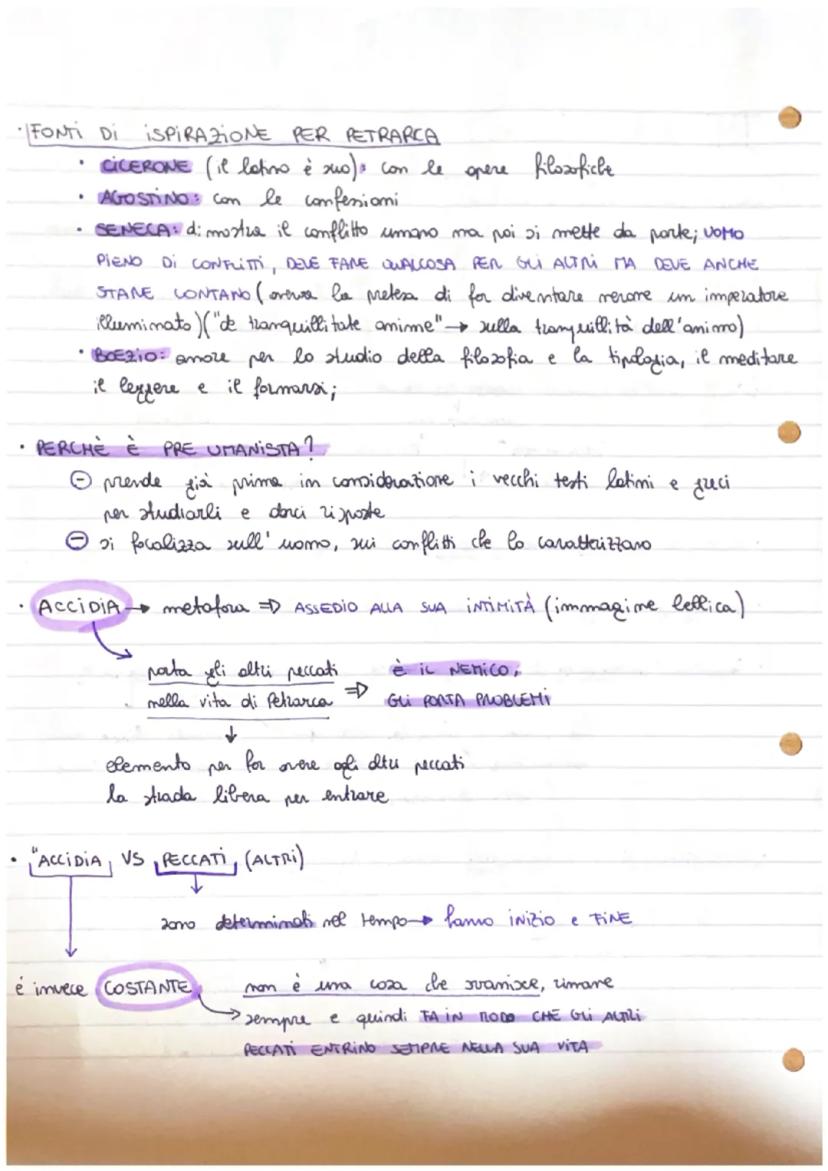 · FONTI DI ISPIRAZIONE PER PETRARCA
· CICERONE (il latino è suo): con le opere filosofiche
· AGOSTINO: con le confessioni
· SENECA: dimostra il conflitto umano ma poi si mette da parte; UOMO
PIENO DI CONFLITTI, DEVE FARE QUALCOSA PER GLI ALTRI MA DEVE ANCHE
STARE LONTANO (aveva la pretesa di far diventare nerone un imperatore
illuminato) ("de tranquillitate animae" → sulla tranquillità dell'animo)
· BOEZIO: amore per lo studio della filosofia e la tipologia, il meditare
il leggere e il formarsi;
· PERCHÈ È PRE UMANISTA?
⊖ prende già prima in considerazione i vecchi testi latini e greci
per studiarli e darci risposte
⊖ si focalizza sull'uomo, sui conflitti che lo caratterizzano
· ACCIDIA → metafora ⇒ ASSEDIO ALLA SUA INTIMITÀ (immagine bellica)
porta gli altri peccati È IL NEMICO,
nella vita di Petrarca ⇒ GLI PORTA PROBLEMI
↓
elemento per far avere agli altri peccati
la strada libera per entrare
· "ACCIDIA VS PECCATI (ALTRI)
sono determinati nel tempo → hanno INIZIO e FINE
é invece COSTANTE non è una cosa che svanisce, rimane
→ sempre e quindi FA IN MODO CHE GLI ALTRI
PECCATI ENTRINO SEMPRE NELLA SUA VITA